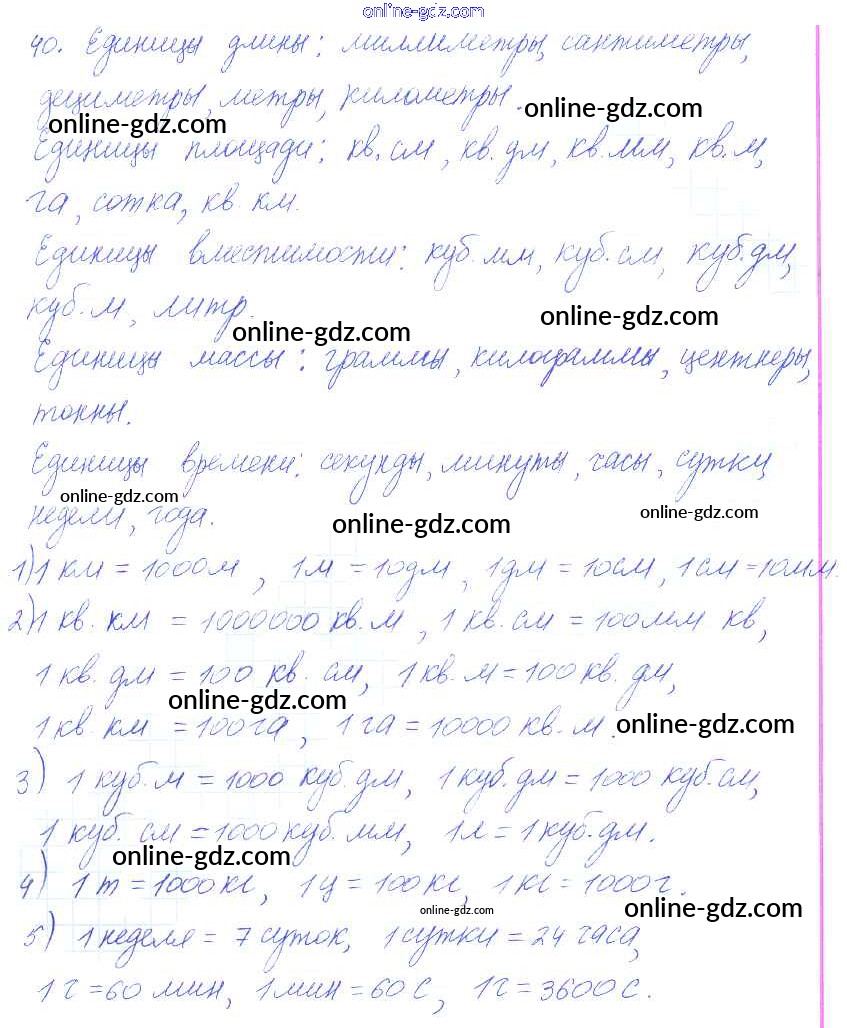 online-gdz.com
40. Единицы длины: миллиметры, сантиметры,
дециметры, метры, километры.
online-gdz.com
online-gdz.com
Единицы площади: кв. см, кв. дм, кв. мм, кв. м,
га, сотка, кв. км.
Единицы вместимости: куб. мм, куб. см, куб. дм,
куб. м, литр.
online-gdz.com
online-gdz.com
Единицы массы: граммы, килограммы, центнеры,
тонны.
Единицы времени: секунды, минуты, часы, сутки,
online-gdz.com
online-gdz.com
недели, года.
online-gdz.com
1) 1 км = 1000м, 1м = 10дм, 1дм = 10см, 1см = 10мм.
2) 1 кв. км = 1000000 кв. м, 1 кв. см = 100мм кв,
1 кв. дм = 100 кв. см, 1 кв. м = 100 кв. дм,
online-gdz.com
1 кв. км = 100га, 1 га = 10000 кв. м.
online-gdz.com
3) 1 куб. м = 1000 куб. дм, 1 куб. дм = 1000 куб. см,
1 куб. см = 1000 куб. мм, 1л = 1 куб. дм.
online-gdz.com
4) 1 т = 1000кг, 1 ц = 100кг, 1кг = 1000г.
online-gdz.com
online-gdz.com
5) 1 неделя = 7 суток, 1 сутки = 24 часа,
1 ч = 60 мин, 1 мин = 60 с, 1ч = 3600 с.